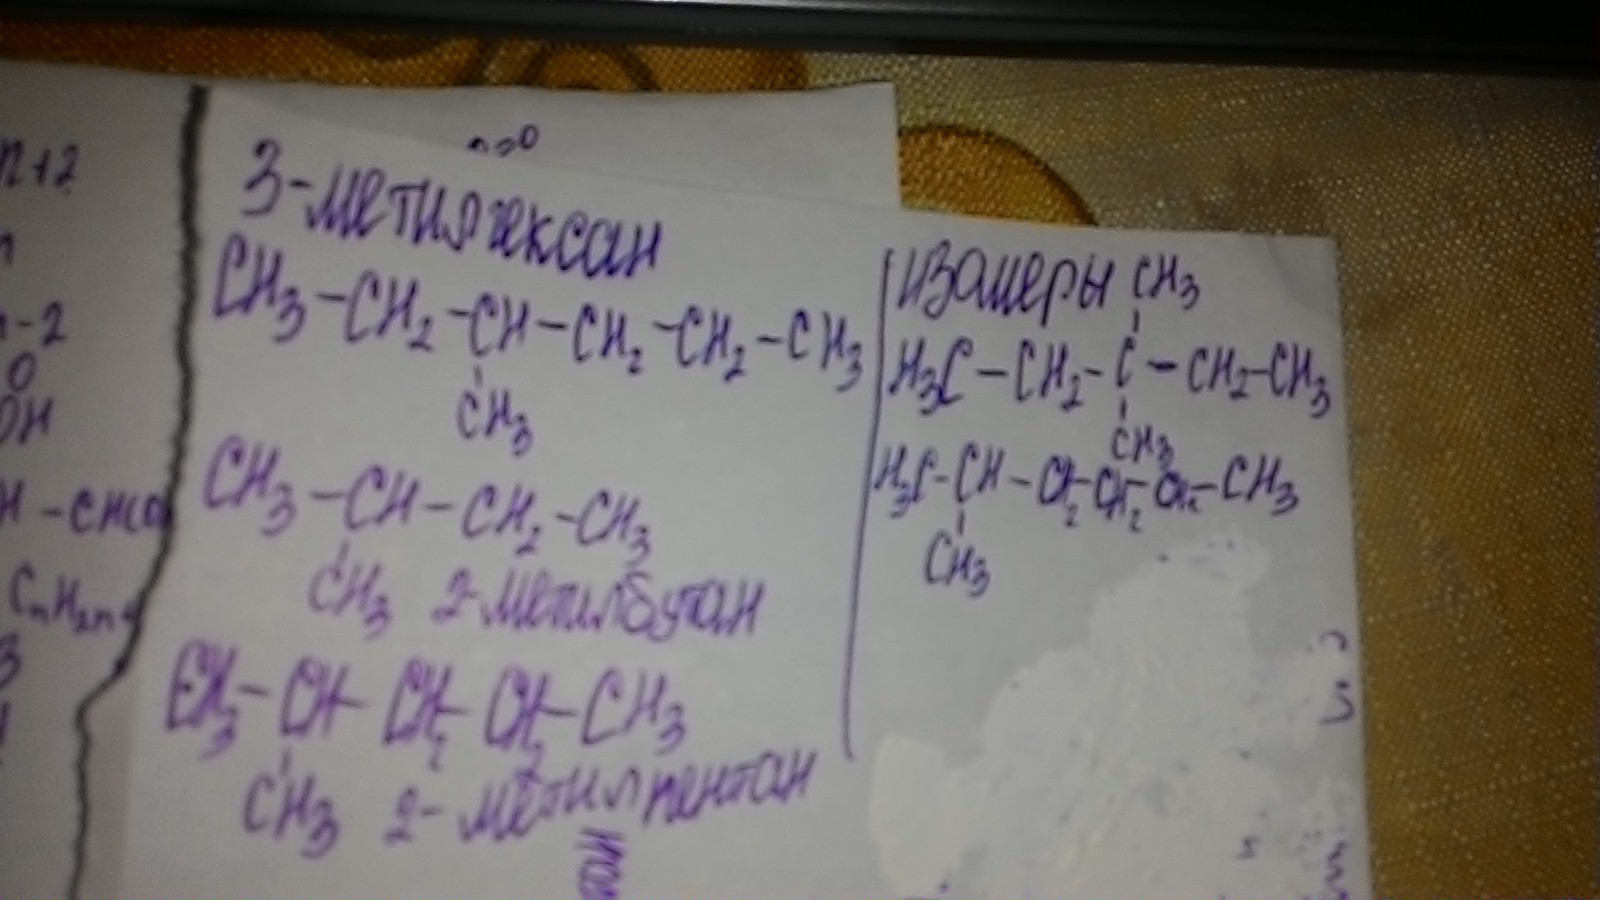 n+2
n-2
O
OH
H - CHCO
CnH2n+
n=0
3-метилгексан
CH3-CH2-CH-CH2-CH2-CH3
CH3
CH3-CH-CH2-CH3
CH3 2-метилбутан
CH3-CH-CH2-CH2-CH3
CH3 2-метилпентан
изомеры CH3
H3C-CH2-C-CH2-CH3
CH3
H3C-CH-CH2-CH2-CH2-CH3
CH3